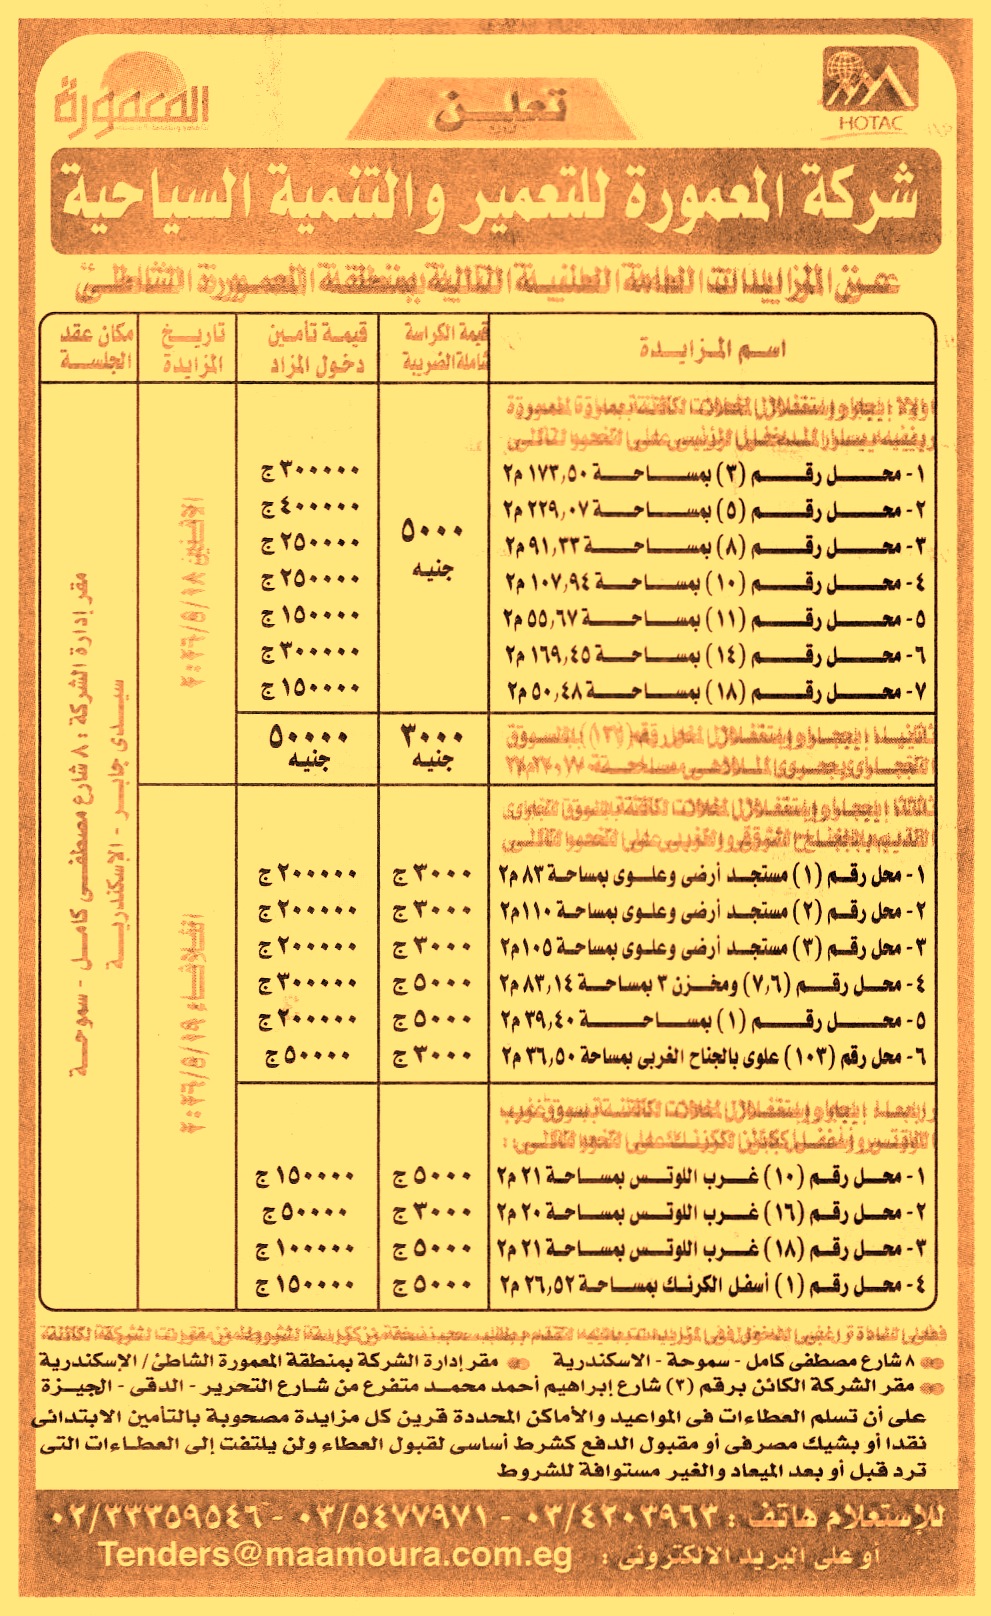 المعمورة
تعلن
HOTAC
شركة المعمورة للتعمير والتنمية السياحية
عن المزايدات العامة العلنية التالية بمنطقة المعمورة الشاطئ
اسم المزايدة
قيمة الكراسة شاملة الضريبة
قيمة تأمين دخول المزاد
تاريخ المزايدة
مكان عقد الجلسة
أولا : إيجار واستغلال المحلات الكائنة بعمارة المعمورة
يسار المدخل الرئيسى على النحو التالى
١- محل رقم (٣) بمساحة ١٧٣,٥٠ م٢ ٣٠٠٠٠٠ ج
٢- محل رقم (٥) بمساحة ٢٢٩,٠٧ م٢ ٤٠٠٠٠٠ ج
٣- محل رقم (٨) بمساحة ٩١,٣٣ م٢ ٢٥٠٠٠٠ ج
٤- محل رقم (١٠) بمساحة ١٠٧,٩٤ م٢ ٢٥٠٠٠٠ ج
٥- محل رقم (١١) بمساحة ٥٥,٦٧ م٢ ١٥٠٠٠٠ ج
٦- محل رقم (١٤) بمساحة ١٦٩,٤٥ م٢ ٣٠٠٠٠٠ ج
٧- محل رقم (١٨) بمساحة ٥٠,٤٨ م٢ ١٥٠٠٠٠ ج
٥٠٠٠ جنيه
ثانيا : إيجار واستغلال المحل رقم بالسوق
التجارى بحرى الملاهى مساحة
٣٠٠٠ جنيه
٥٠٠٠٠ جنيه
الاثنين
ثالثا : إيجار واستغلال المحلات الكائنة بالسوق التجارى
القديم بالجناح الشرقى والغربى على النحو التالى
١- محل رقم (١) مستجد أرضى وعلوى بمساحة ٨٣ م٢ ٣٠٠٠ ج ٢٠٠٠٠٠ ج
٢- محل رقم (٢) مستجد أرضى وعلوى بمساحة ١١٠ م٢ ٣٠٠٠ ج ٢٠٠٠٠٠ ج
٣- محل رقم (٣) مستجد أرضى وعلوى بمساحة ١٠٥ م٢ ٣٠٠٠ ج ٢٠٠٠٠٠ ج
٤- محل رقم (٧,٦) ومخزن ٣ بمساحة ٨٣,١٤ م٢ ٥٠٠٠ ج ٣٠٠٠٠٠ ج
٥- محل رقم (١) بمساحة ٣٩,٤٠ م٢ ٥٠٠٠ ج ٢٠٠٠٠٠ ج
٦- محل رقم (١٠٣) علوى بالجناح الغربى بمساحة ٣٦,٥٠ م٢ ٣٠٠٠ ج ٥٠٠٠٠ ج
رابعا : إيجار واستغلال المحلات الكائنة بسوق غرب
اللوتس وأسفل كبائن الكرنك على النحو التالى :
١- محل رقم (١٠) غرب اللوتس بمساحة ٢١ م٢ ٥٠٠٠ ج ١٥٠٠٠٠ ج
٢- محل رقم (١٦) غرب اللوتس بمساحة ٢٠ م٢ ٣٠٠٠ ج ٥٠٠٠٠ ج
٣- محل رقم (١٨) غرب اللوتس بمساحة ٢١ م٢ ٥٠٠٠ ج ١٠٠٠٠٠ ج
٤- محل رقم (١) أسفل الكرنك بمساحة ٢٦,٥٢ م٢ ٥٠٠٠ ج ١٥٠٠٠٠ ج
الثلاثاء
مقر إدارة الشركة : ٨ شارع مصطفى كامل - سموحة
سيدى جابر - الإسكندرية
فعلى السادة راغبى الدخول فى المزايدات عاليه التقدم بطلب سحب نسخة من كراسة الشروط من مقرات الشركة الكائنة
٨ شارع مصطفى كامل - سموحة - الاسكندرية
مقر إدارة الشركة بمنطقة المعمورة الشاطئ/ الإسكندرية
مقر الشركة الكائن برقم (٣) شارع إبراهيم أحمد محمد متفرع من شارع التحرير - الدقى - الجيزة
على أن تسلم العطاءات فى المواعيد والأماكن المحددة قرين كل مزايدة مصحوبة بالتأمين الابتدائى
نقدا أو بشيك مصرفى أو مقبول الدفع كشرط أساسى لقبول العطاء ولن يلتفت إلى العطاءات التى
ترد قبل أو بعد الميعاد والغير مستوافة للشروط
للإستعلام هاتف : ٠٣/٤٢٠٣٩٦٣ - ٠٣/٥٤٧٧٩٧١ - ٠٢/٣٣٣٥٩٥٤٦
أو على البريد الالكترونى : Tenders@maamoura.com.eg